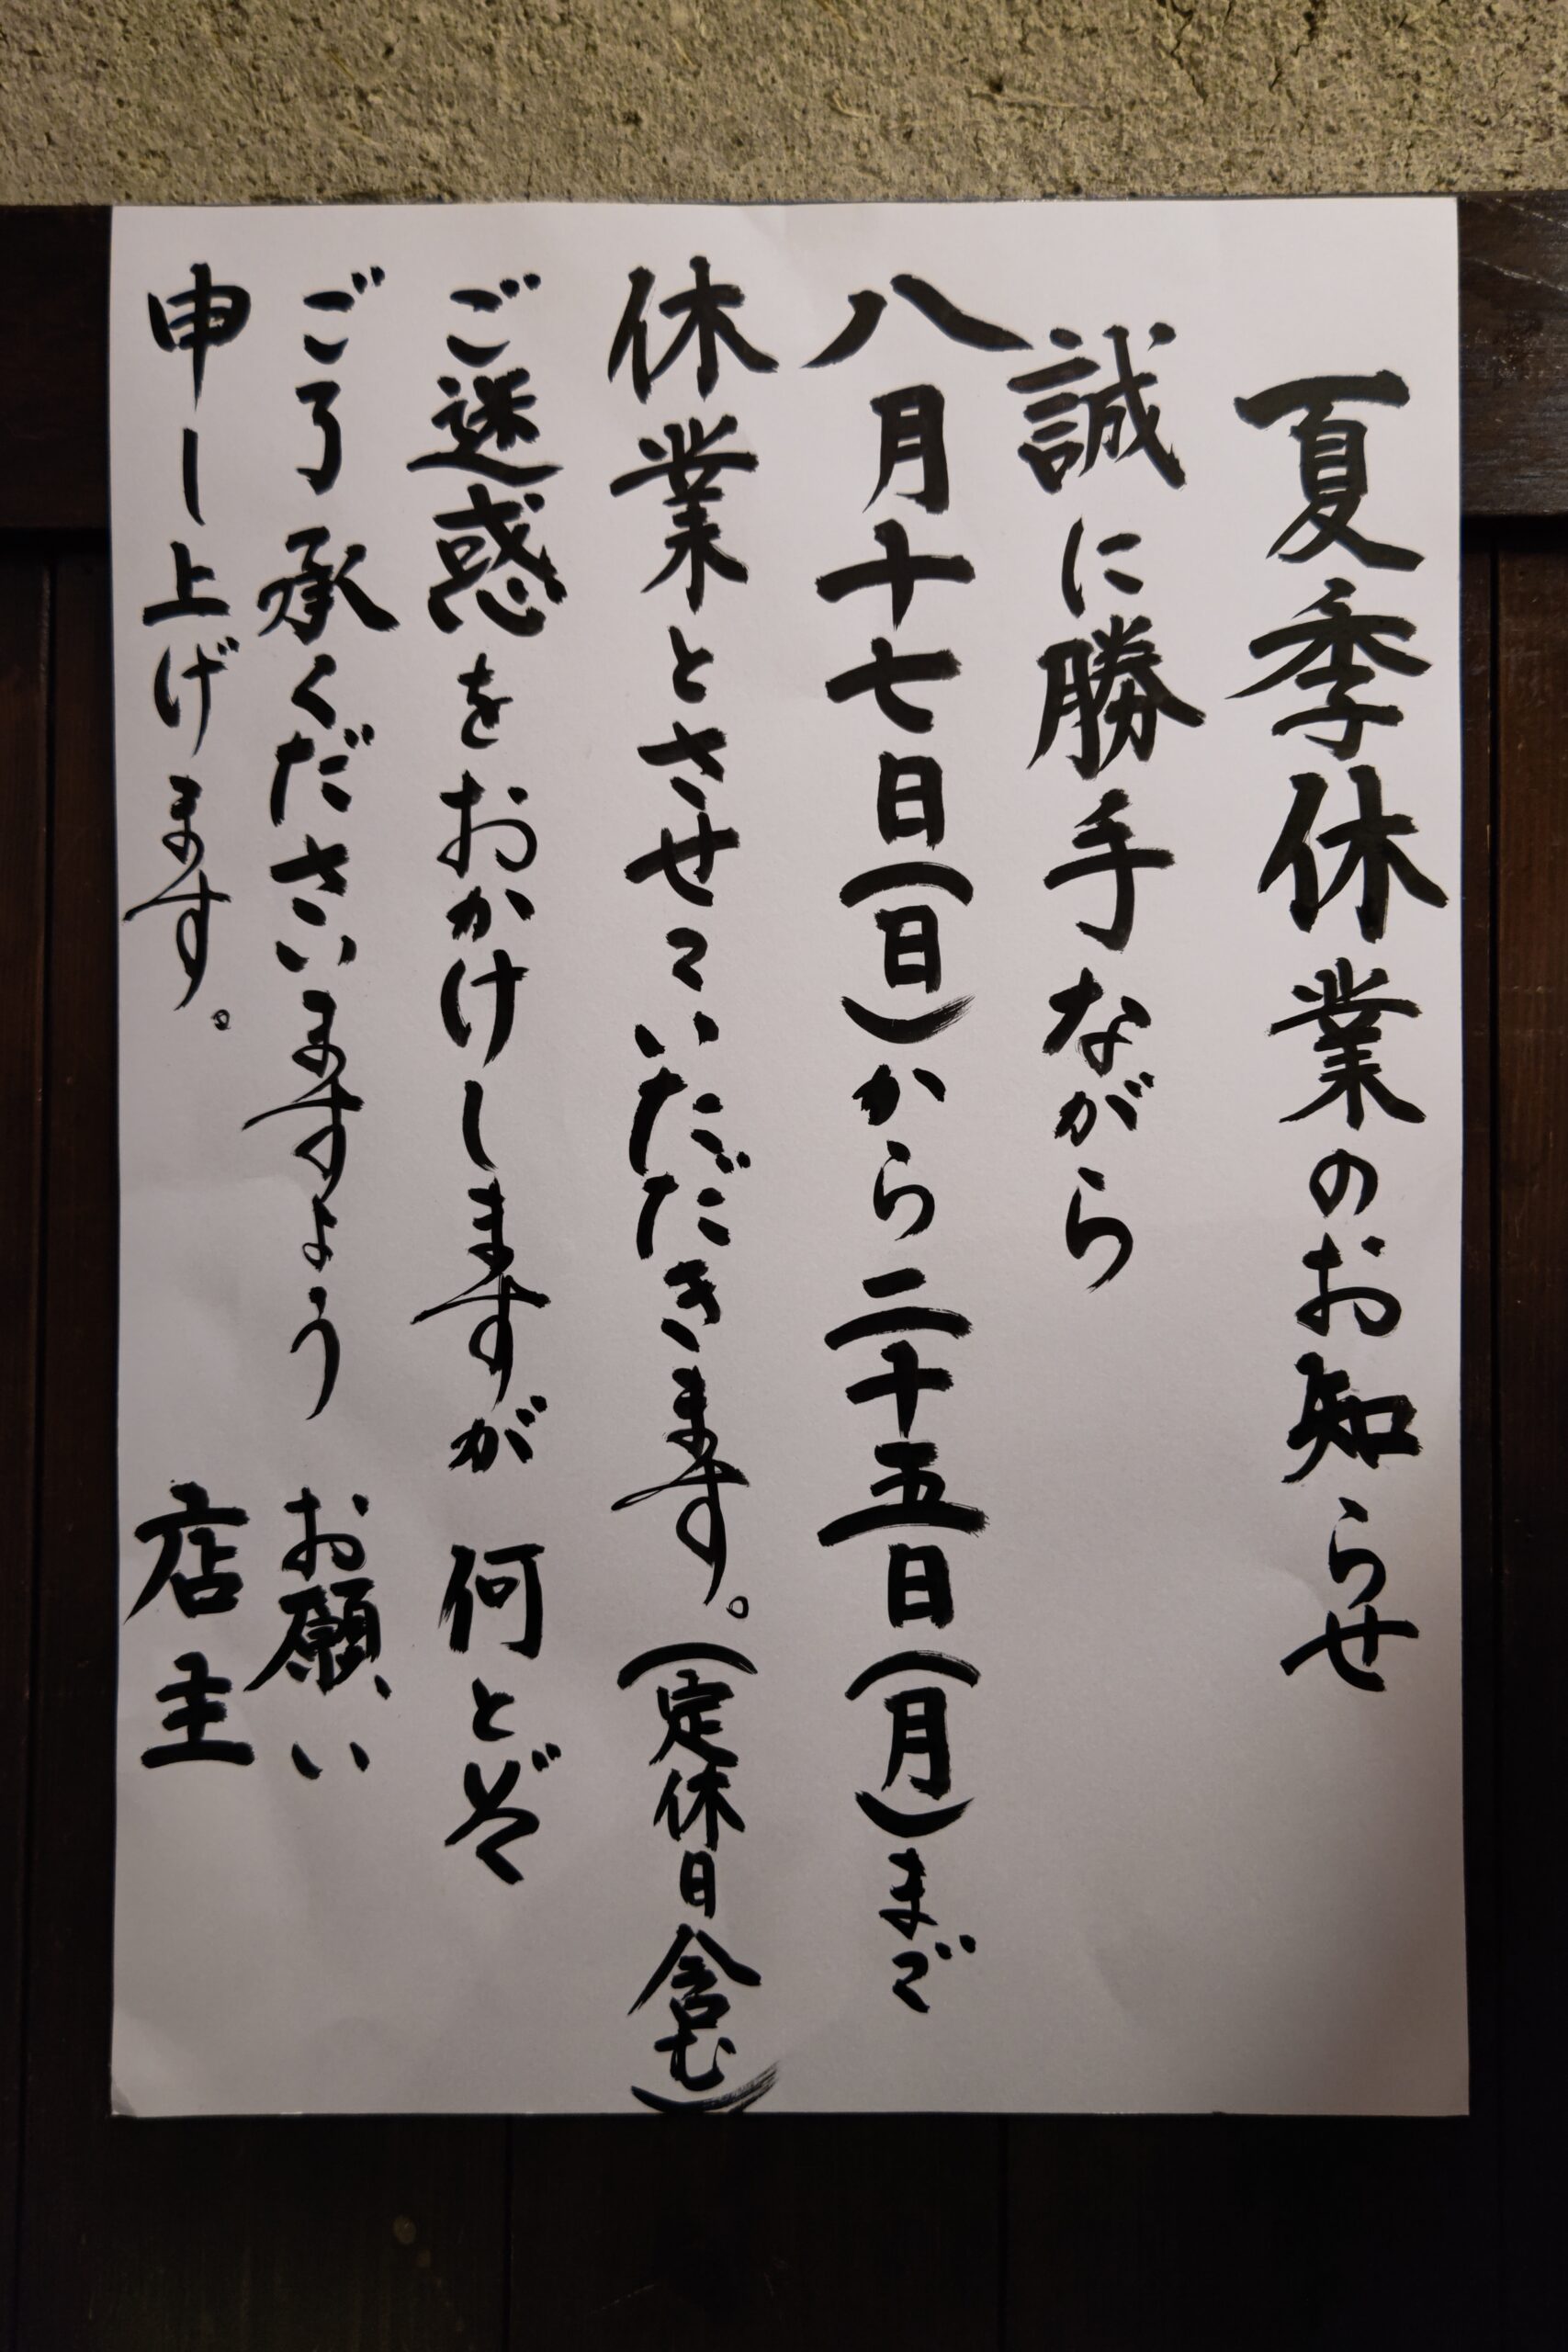 夏季休業のお知らせ
誠に勝手ながら
八月十七日(日)から二十五日(月)まで
休業とさせていただきます。(定休日含む)
ご迷惑をおかけしますが 何とぞ
ご了承くださいますよう お願い
申し上げます。 店主